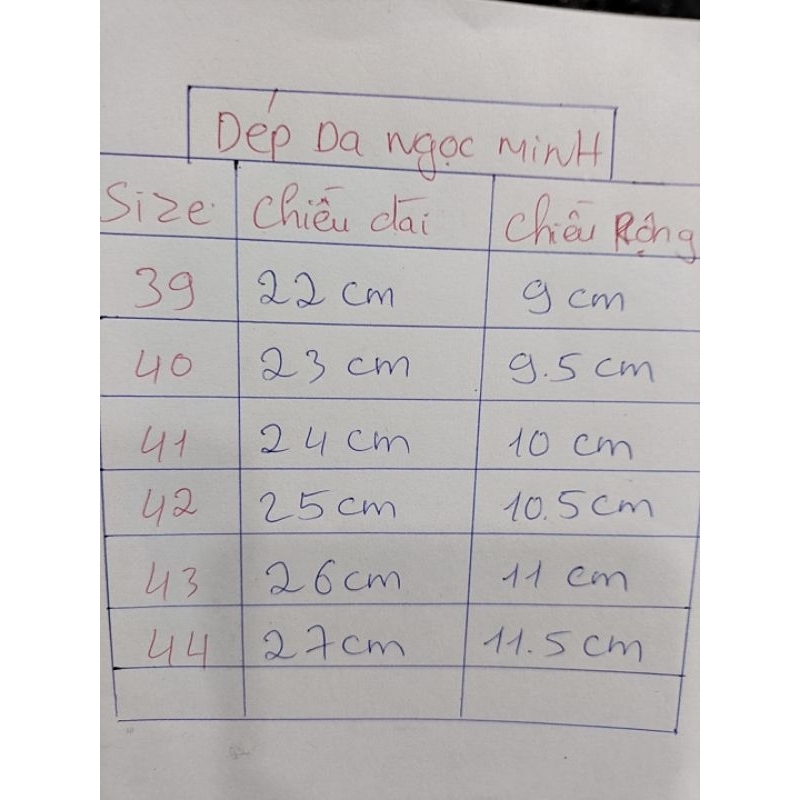 Dép Da Ngọc MinH
Size Chiều dài Chiều Rộng
39 22 cm 9 cm
40 23 cm 9.5 cm
41 24 cm 10 cm
42 25 cm 10.5 cm
43 26 cm 11 cm
44 27 cm 11.5 cm